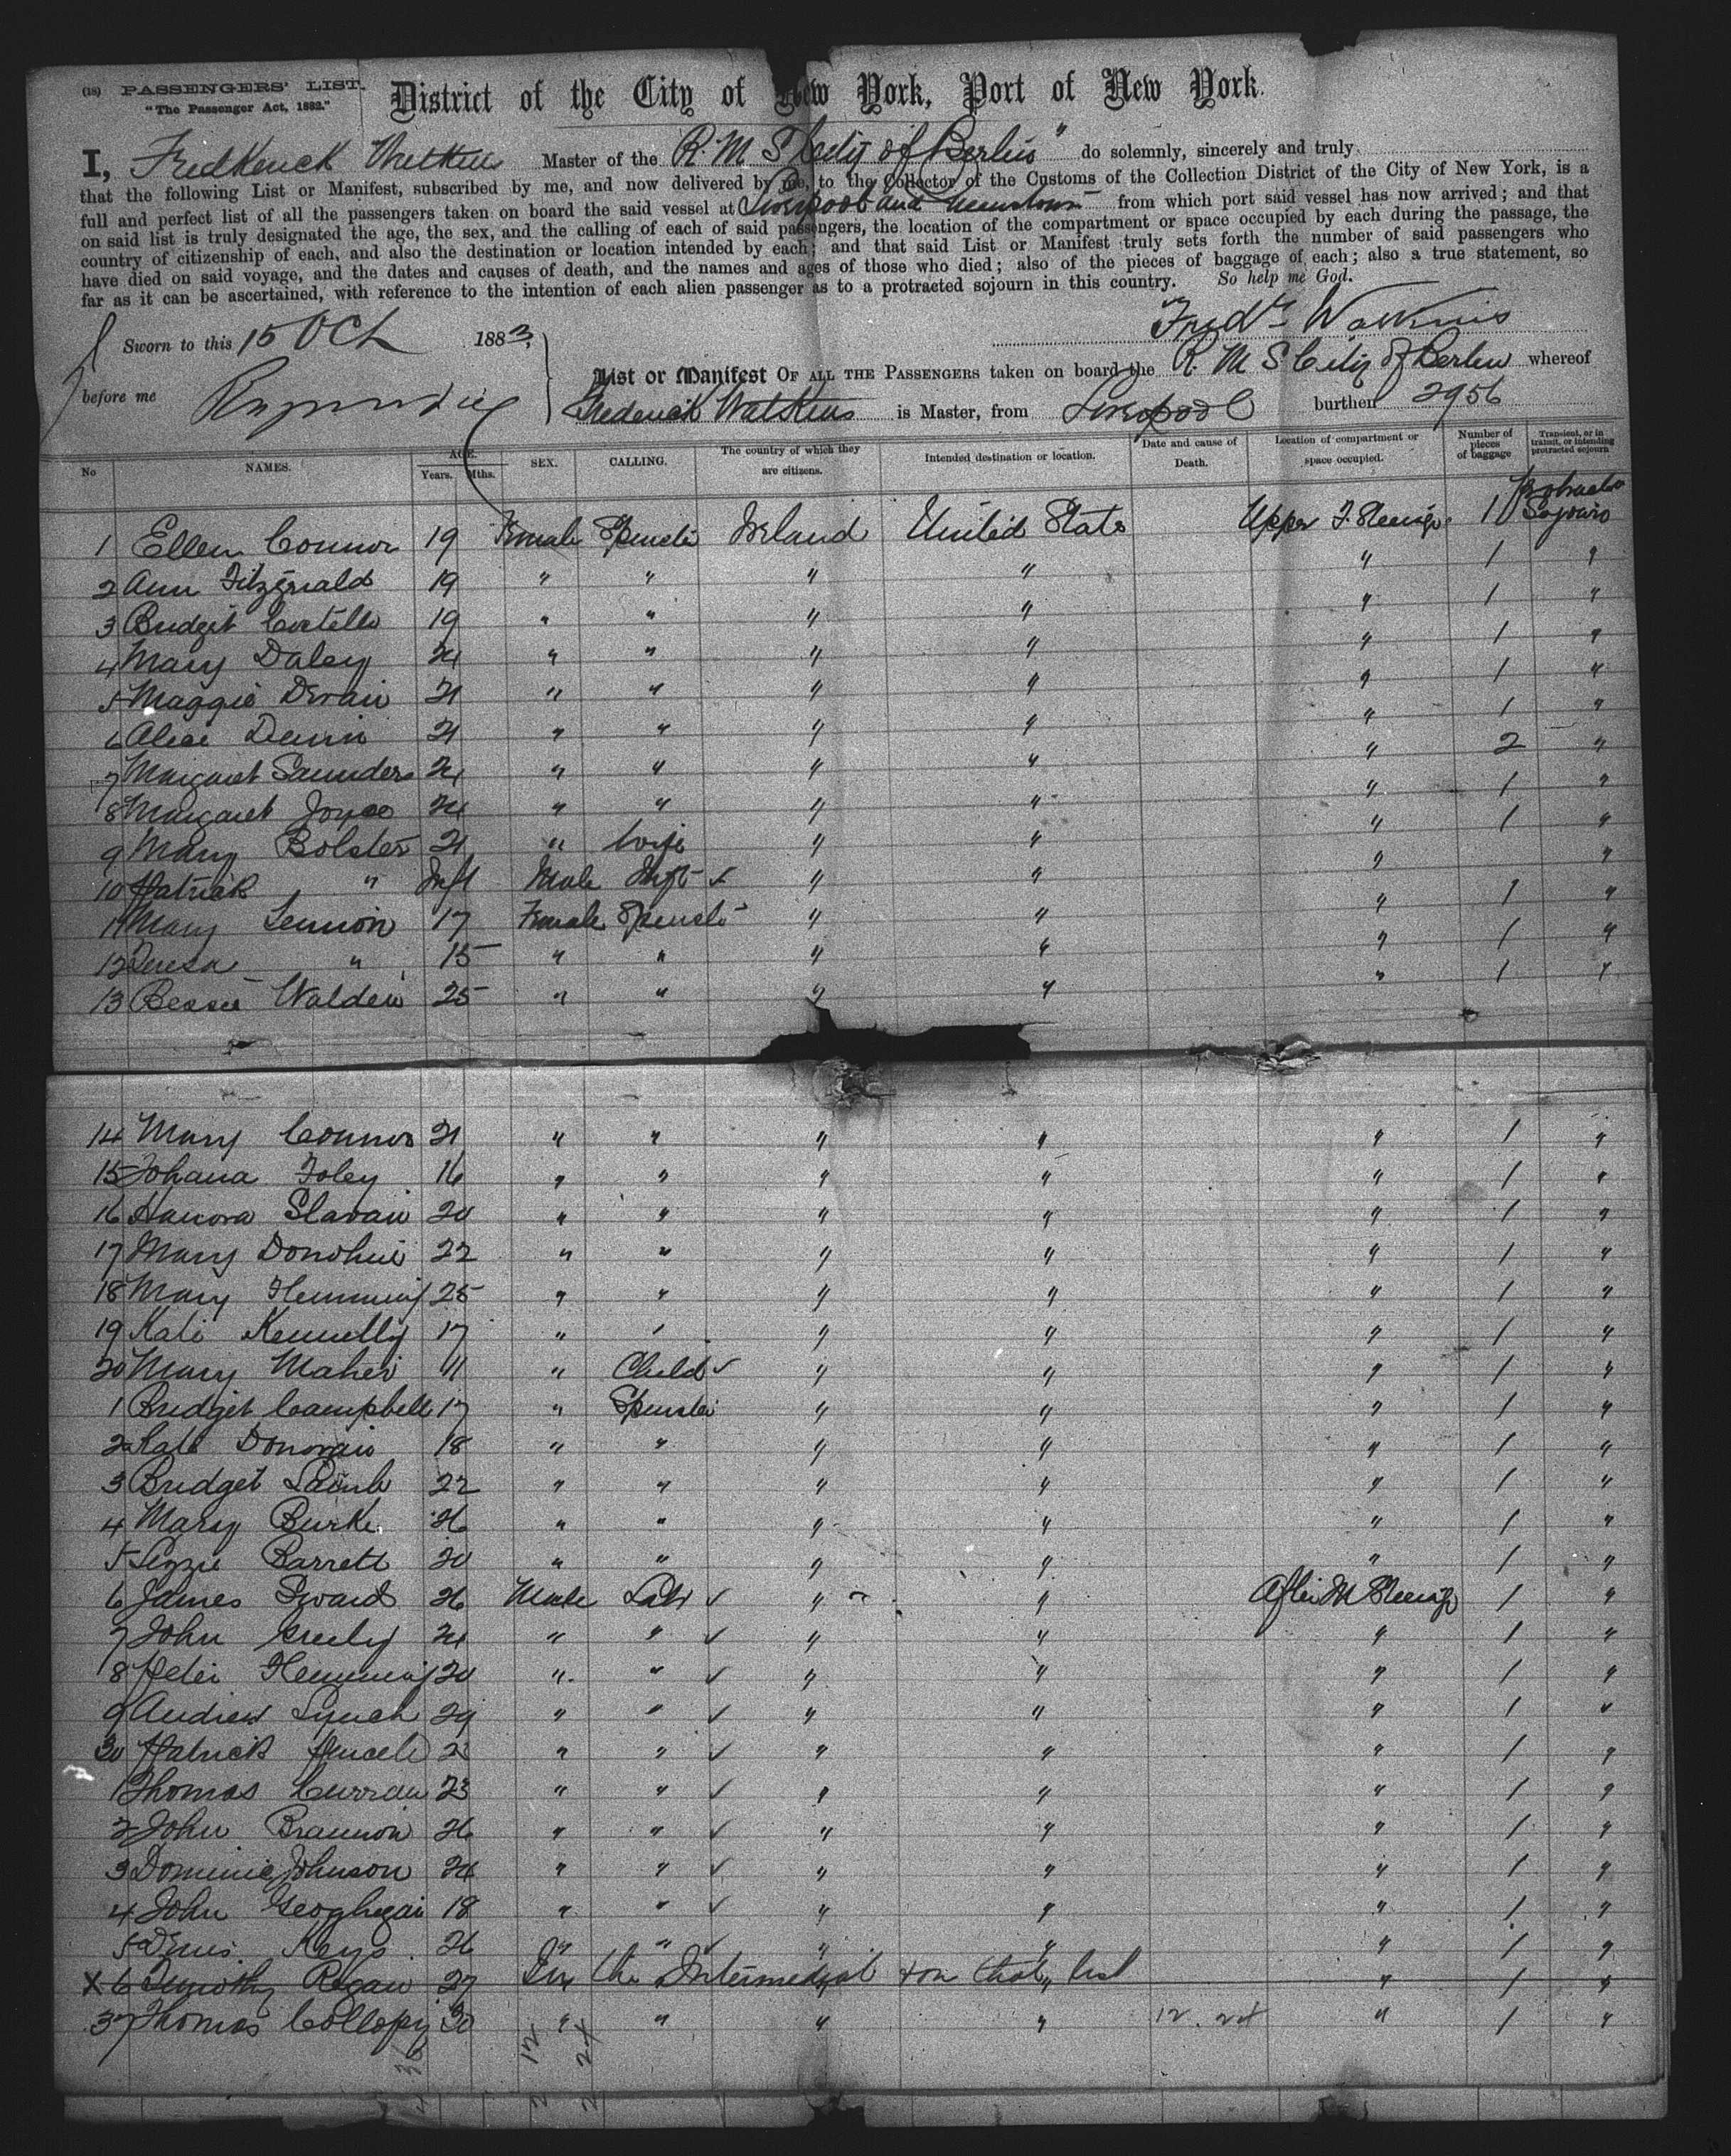 (18) PASSENGERS' LIST.
"The Passenger Act, 1882."
District of the City of New York, Port of New York.
I, Master of the R. M. S "City of Berlin" do solemnly, sincerely and truly
that the following List or Manifest, subscribed by me, and now delivered by me, to the Collector of the Customs of the Collection District of the City of New York, is a
full and perfect list of all the passengers taken on board the said vessel at Liverpool and Queenstown from which port said vessel has now arrived; and that
on said list is truly designated the age, the sex, and the calling of each of said passengers, the location of the compartment or space occupied by each during the passage, the
country of citizenship of each, and also the destination or location intended by each; and that said List or Manifest truly sets forth the number of said passengers who
have died on said voyage, and the dates and causes of death, and the names and ages of those who died; also of the pieces of baggage of each; also a true statement, so
far as it can be ascertained, with reference to the intention of each alien passenger as to a protracted sojourn in this country. So help me God.
Fredk Watkins
Sworn to this 15 Oct 1883,
before me
List or Manifest OF ALL THE PASSENGERS taken on board the R. M S City of Berlin whereof
Frederick Watkins is Master, from Liverpool burthen 2956
No NAMES. AGE. Years. Mths. SEX. CALLING. The country of which they are citizens. Intended destination or location. Date and cause of Death. Location of compartment or space occupied. Number of pieces of baggage Transient, or in transit, or intending protracted sojourn
1 Ellen Connor 19 Female Spinster Ireland United States Upper F. Steerige 1 Protracted Sojourn
2 Ann Fitzgerald 19 " " " " " 1 "
3 Bridget Costello 19 " " " " " 1 "
4 Mary Daley 24 " " " " " 1 "
5 Maggie 21 " " " " " 1 "
6 Alice 21 " " " " " 1 "
7 Margaret Saunders 24 " " " " " 2 "
8 Margaret Joyce 24 " " " " " 1 "
9 Mary Bolster 21 " Wife " " " 1 "
10 Patrick " Inft Male Inft ✓ " " " "
11 Mary Lennon 17 Female Spinster " " " 1 "
12 Teresa " 15 " " " " " 1 "
13 Bessie Walden 25 " " " " " 1 "
14 Mary Connor 21 " " " " " 1 "
15 Johana Foley 16 " " " " " 1 "
16 Hanora Slavin 20 " " " " " 1 "
17 Mary Donohue 22 " " " " " 1 "
18 Mary Flemming 25 " " " " " 1 "
19 Kate Kennelly 17 " " " " " 1 "
20 Mary Maher 11 " Child ✓ " " " 1 "
1 Bridget Campbell 17 " Spinster " " " 1 "
2 Kate Donovan 18 " " " " " 1 "
3 Bridget 22 " " " " " 1 "
4 Mary Burke 26 " " " " " 1 "
5 Lizzie Barrett 20 " " " " " 1 "
6 James 26 Male Labr ✓ " " After M Steerige 1 "
7 John 24 " " ✓ " " " 1 "
8 Peter Flemming 20 " " ✓ " " " 1 "
9 Andrew Lynch 29 " " ✓ " " " 1 "
30 Patrick 23 " " ✓ " " " 1 "
1 Thomas Curran 23 " " ✓ " " " 1 "
2 John Brannon 26 " " ✓ " " " 1 "
3 Dominic Johnson 24 " " ✓ " " " 1 "
4 John Geoghegan 18 " " ✓ " " " 1 "
5 Denis Keys 26 " " ✓ " " " 1 "
X 6 Timothy Regan 27 In the Intermediat & on that list " 1 "
37 Thomas Collopy 30 " " " " 12. 24 " 1 "
12
24